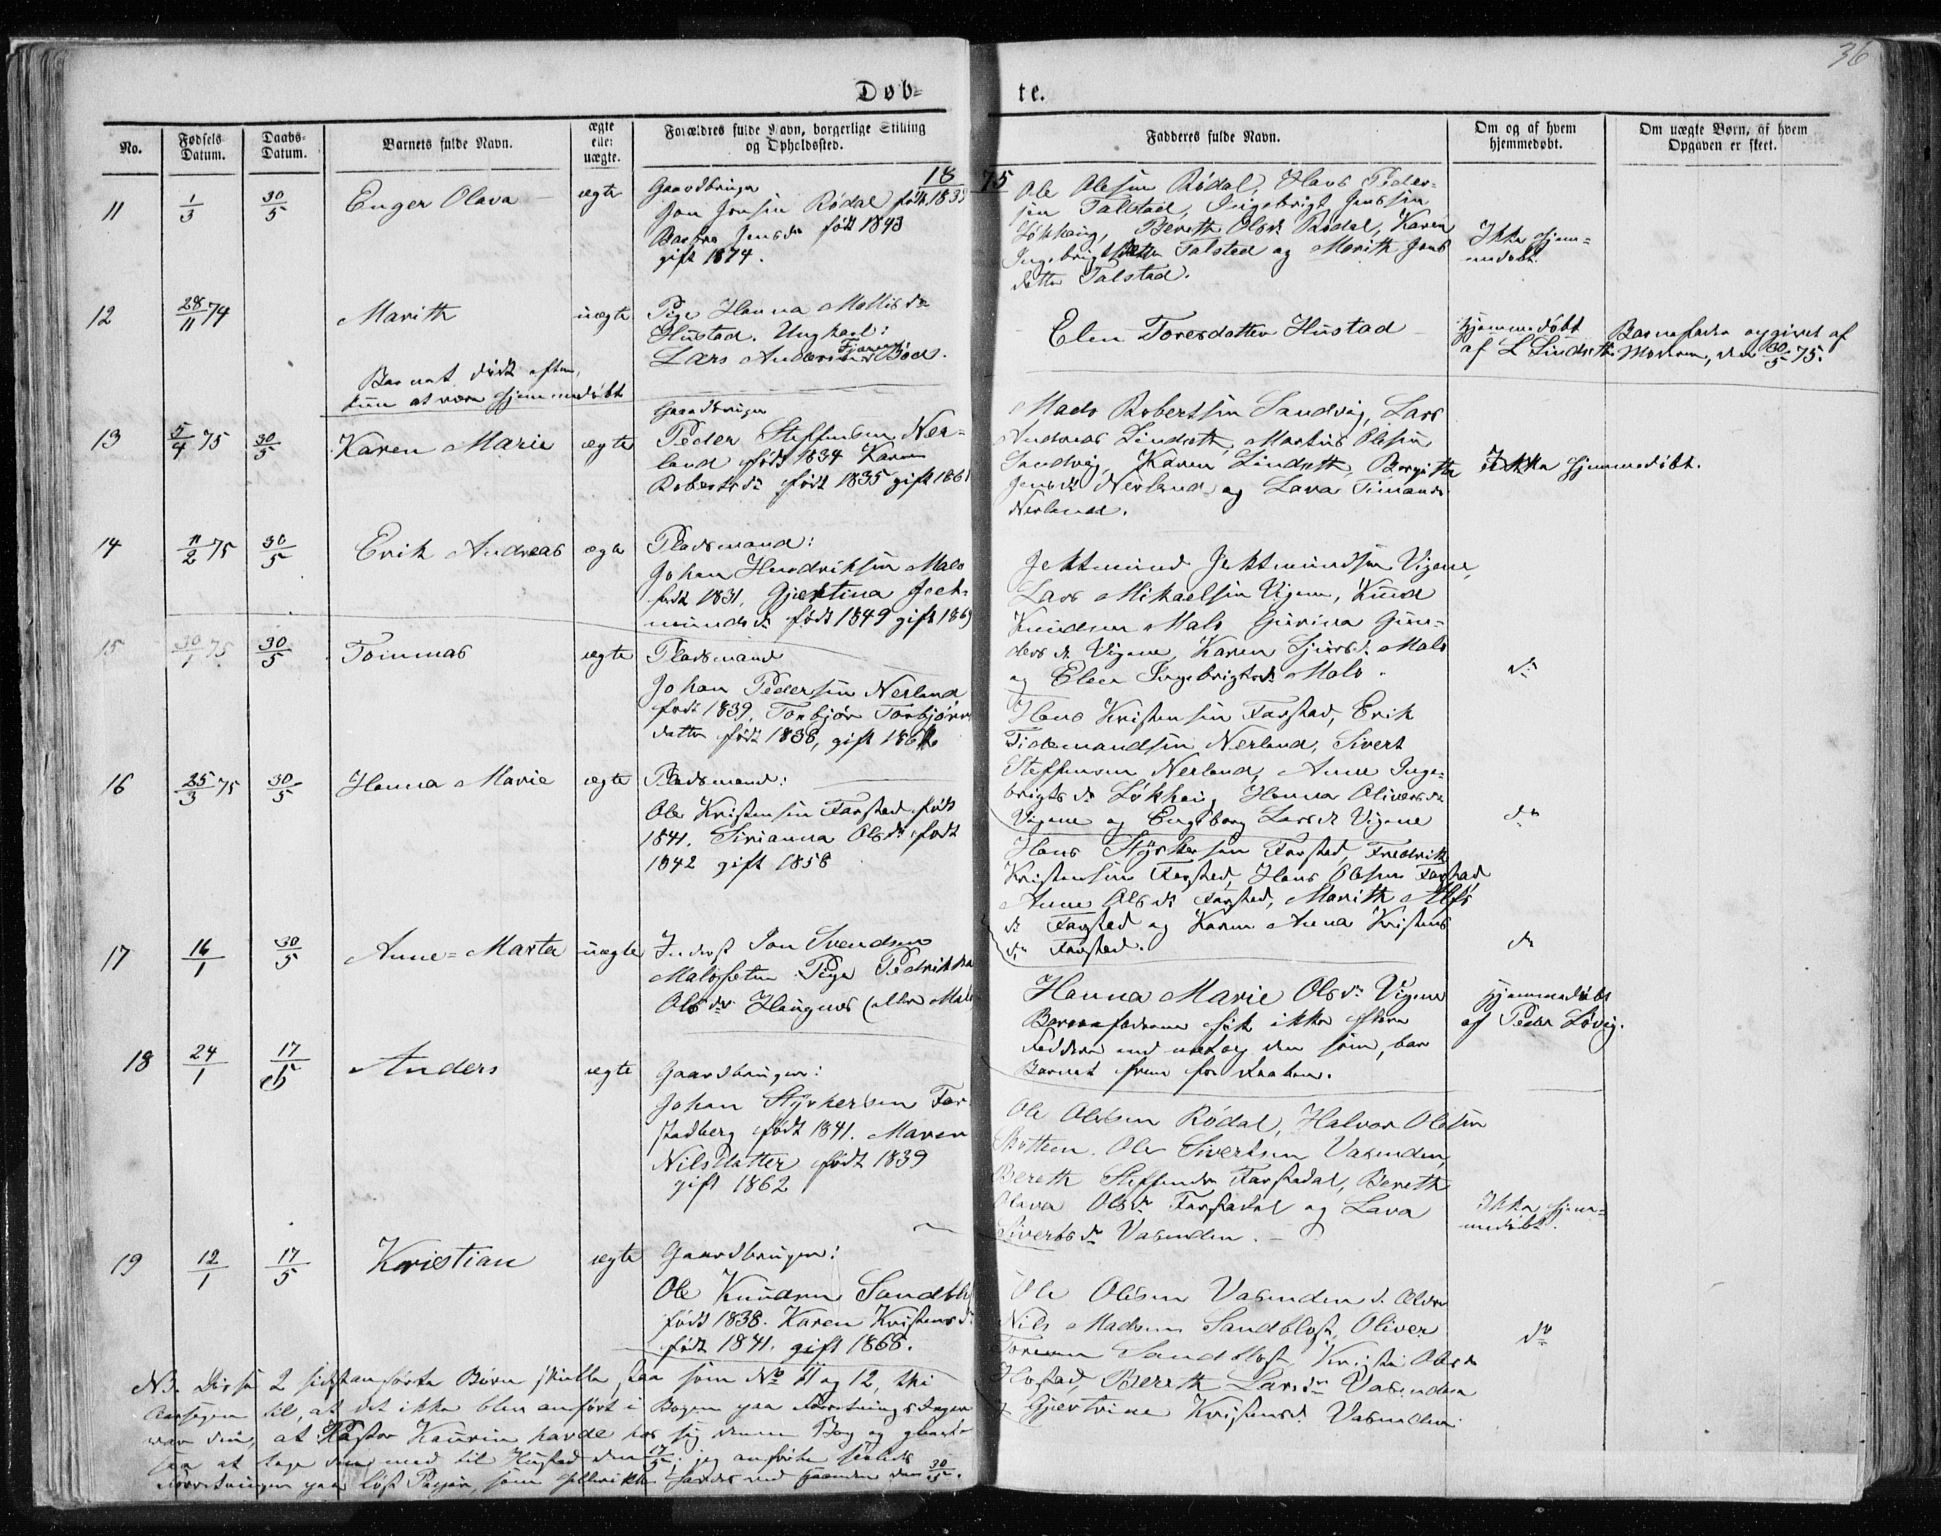 36
Døb=
te.
No.
Fødsels Datum.
Daabs-Datum.
Barnets fulde Navn.
ægte eller uægte.
Forældres fulde Navn, borgerlige Stilling og Opholdssted.
Fadderes fulde Navn.
Om og af hvem hjemmedøbt.
Om uægte Børn, af hvem Opgaven er skeet.
18
75
11
1/3
30/5
Enger Olava
ægte
Gaardbruger
Jon Jonsen Rødal født 183
Barbro Jensdr født 1843
gift 1874.
Ole Olesen Rødal, Hans Peder-
sen Talstad, Ingebrigt Jenssen
Løkhaug, Bereth Olsdr Rødal, Karen
Ingebrigtsdatter Talstad og Marith Jens
datter Talstad.
Ikke hjem=
medøbt.
12
28/11 74
Marith
uægte
Pige Hanna Mollisdr
Hustad. Ungkarl:
Lars Andersen Bøes.
Barnet dødt efter,
kun at være hjemmedøbt
Elen Toresdatter Hustad
Hjemmedøbt
af L Lindseth
Barnefader opgivet af
Moderen, den 30/5 75.
13
5/4 75
30/5
Karen Marie
ægte
Gaardbruger
Peder Steffensen Ner=
land født 1834 Karen
Robertsdr født 1835 gift 186
Mads Robertsen Sandvig, Lars
Andreas Lindseth, Martus Olesen
Sandvig, Karen Lindseth, Bergitte
Jensdr Nerland og Lava Timands
Nerland.
Ikke hjemmedøbt.
14
11/2 75
30/5
Erik Andreas
ægte
Pladsmand:
Johan Hendriksen Malo
født 1831, Gjertina Jeck-
mundsdr født 1849 gift 1869
Jektmund Jektmundsen Vigene,
Lars Mikaelsen Vigene, Knud
Knudsen Malo Gurina Gun-
dersdr Vigene, Karen Sjursdr Malo
og Elen Ingebrigtsdr Malo.
do
15
30/1 75
30/5
Tommas
ægte
Pladsmand
Johan Pedersen Nerland
født 1839, Torbjør Torbjørns
datter født 1838, gift 186
Hans Kristensen Farstad, Erik
Tidemandsen Nerland, Sivert
Steffensen Nerland, Anne Inge-
brigtsdr Løkhaug, Hanna Oliversdr
Vigene og Engeborg Larsdr Vigene
do
16
25/3 75
30/5
Hanna Marie
ægte
Pladsmand:
Ole Kristensen Farstad født
1841. Sirianna Olsdr født
1842 gift 1858
Hans Styrkersen Farstad, Fredrik
Kristensen Farstad, Hans Olesen Farstad
Anne Olsdr Farstad, Marith Alfs
dr Farstad og Karen Anna Kristens
dr Farstad.
do
17
16/1
30/5
Anne=Marta
uægte
Inderst Jon Svendsen
Malosæter Pige Pedrikka
Olsdr Haugnes (eller Malo
Hanna Marie Olsdr Vigene
Barnefaderen fik ikke flere
Faddere end netop den som, bar
Barnet frem for Daaben.
Hjemmedøbt
af Peder Løvig.
18
24/1
17/5
Anders
ægte
Gaardbruger:
Johan Styrkersen Far
stadberg født 1841. Maren
Nilsdatter født 1839
gift 1862
Ole Olesen Rødal, Halvor Olesen
Botten. Ole Sivertsen Vasenden,
Bereth Steffensdr Farstadal, Bereth
Olava Olsdr Farstadal og Lava
Sivertsdr Vasenden.
Ikke hjem=
medøbt.
19
12/1
17/5
Kristian
ægte
Gaardbruger:
Ole Knudsen Sandbl
født 1838. Karen Kristensdr
født 1841. gift 1868.
Ole Olesen Vasenden d. Ældre
Nils Madsen Sandblost, Oliver
Toresen Sandblost Kristi Olsdr
Hostad, Bereth Larsdr Vasenden
Gjertrine Kristensdr Vasenden
do
NB. Disse 2 sidstanførte Børn skulle staa som No 11 og 12, thi
Aarsagen til, at det ikke blev anført i Bogen paa Forretningsdagen
var den, at Pastor Kaurin havde hos sig denne Bog og glemte
paa at tage den med til Hustad den 17/5, jeg anførte saaledes
Forretningen paa løst Papir, som den 30/5.